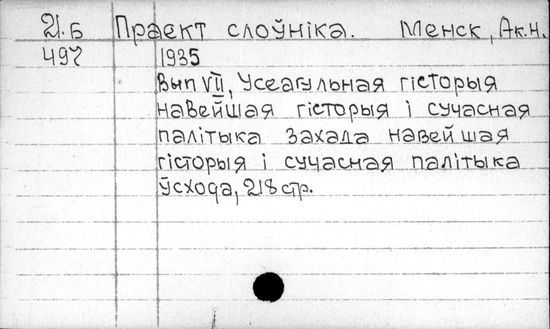 21.Б Праект слоўніка. Менск, Ак.Н.
497 1935
Вып VII, Усеагульная гісторыя
навейшая гісторыя і сучасная
палітыка Захада навейшая
гісторыя і сучасная палітыка
ўсхода, 218 стр.